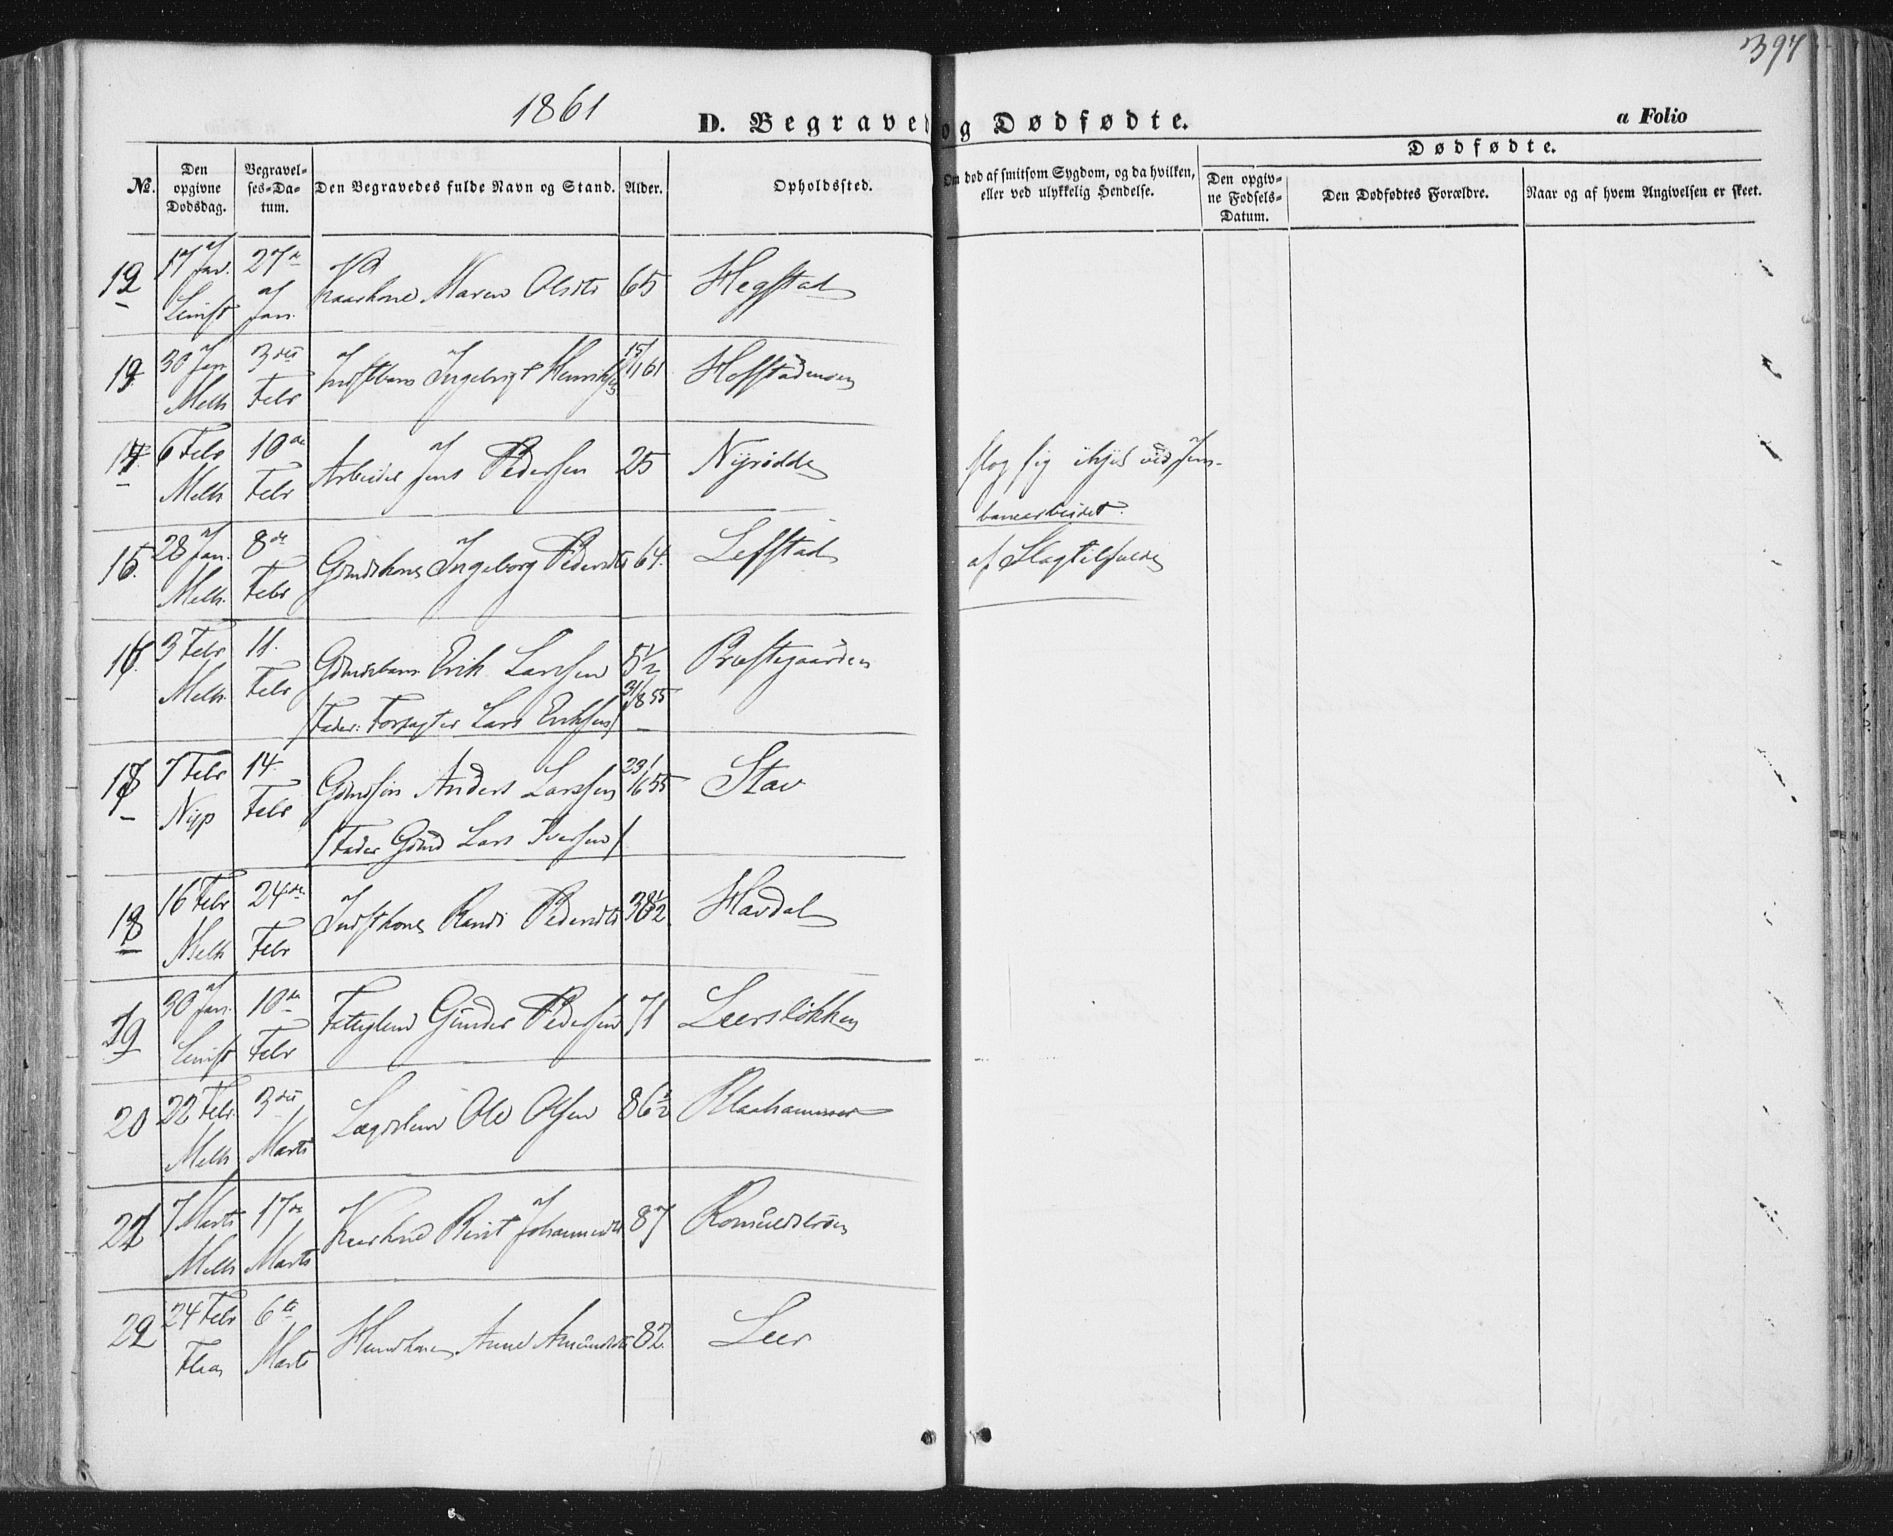 397
1861
D. Begravede og Dødfødte.
a Folio
No.
Den opgivne Dødsdag.
Begravelses-Datum.
Den Begravedes fulde Navn og Stand.
Alder.
Opholdssted.
Om død af smitsom Sygdom, og da hvilken, eller ved ulykkelig Hendelse.
Dødfødte.
Den opgivne Fødsels-Datum.
Den Dødfødtes Forældre.
Naar og af hvem Angivelsen er skeet.
12 17 Jan. 27de Jan. Kaarkone Maren Olsdtr 65 Hegstad
13 30 Jan. Melh 3die Febr Indstbarn Ingebrigt Henriksen 61 Hofstadmoen
14 6 Febr Melh 10de Febr Arbeider Jens Pedersen 25 Nyrødde slog sig ihjel ved Jern-
banearbeidet.
15. 28 Jan. Melh. 8de Febr Gmdskone Ingeborg Pedersdtr 64. Lefstad af Slagtilfælde
16. 3 Febr Melh. 11. Febr Gmdsbarn Erik Larssen 5 1/2 31/8 55 Præstegaarden
/Fader: Forpagter Lars Eriksen/
17 7 Febr Nyp 14. Febr Gmdssøn Anders Larssen 55 Stav
/Fader Gmd Lars Iversen/
18 16 Febr Melh 24de Febr Indstkone Randi Pedersdtr 38 1/2 Havdal
19 30 Jan. 10de Febr Fattiglem Gunder Pedersen 71 Leersløkken
20 22 Febr. Melh 3die Marts Lægdslem Ole Olsen 86 1/2 Klaahammer
21 7 Marts Melh 17de Marts Kaarkone Berit Johannesdtr 87
22 24 Febr Flaa 6te Marts Anne Amundsdtr 82. Leer